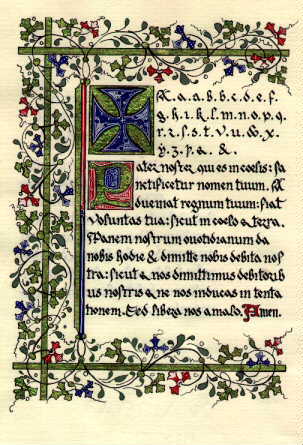 A. a. a. b. b. c. d. e. f.
g. h. i. k. l. m. n. o. p. q.
r. z. s. s. t. v. u. w. x.
y. z. ꝛ. a. &.
Pater noster, qui es in coelis: sa
nctificetur nomen tuum. A
dveniat regnum tuum: fiat
voluntas tua: sicut in coelo & terra.
Panem nostrum quotidianum da
nobis hodie & dimitte nobis debita nos
tra: sicut & nos dimittimus debitorib
us nostris & ne nos inducas in tenta
tionem. Sed libera nos a malo. Amen.